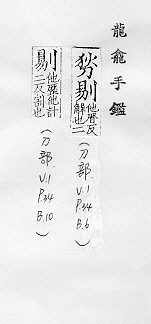 龍龕手鑑
剔 他曆反解也二
(刀部 V.1 P.34 B.6)
剔 他曆他計二反割也
(刀部 V.1 P.34 B.10)